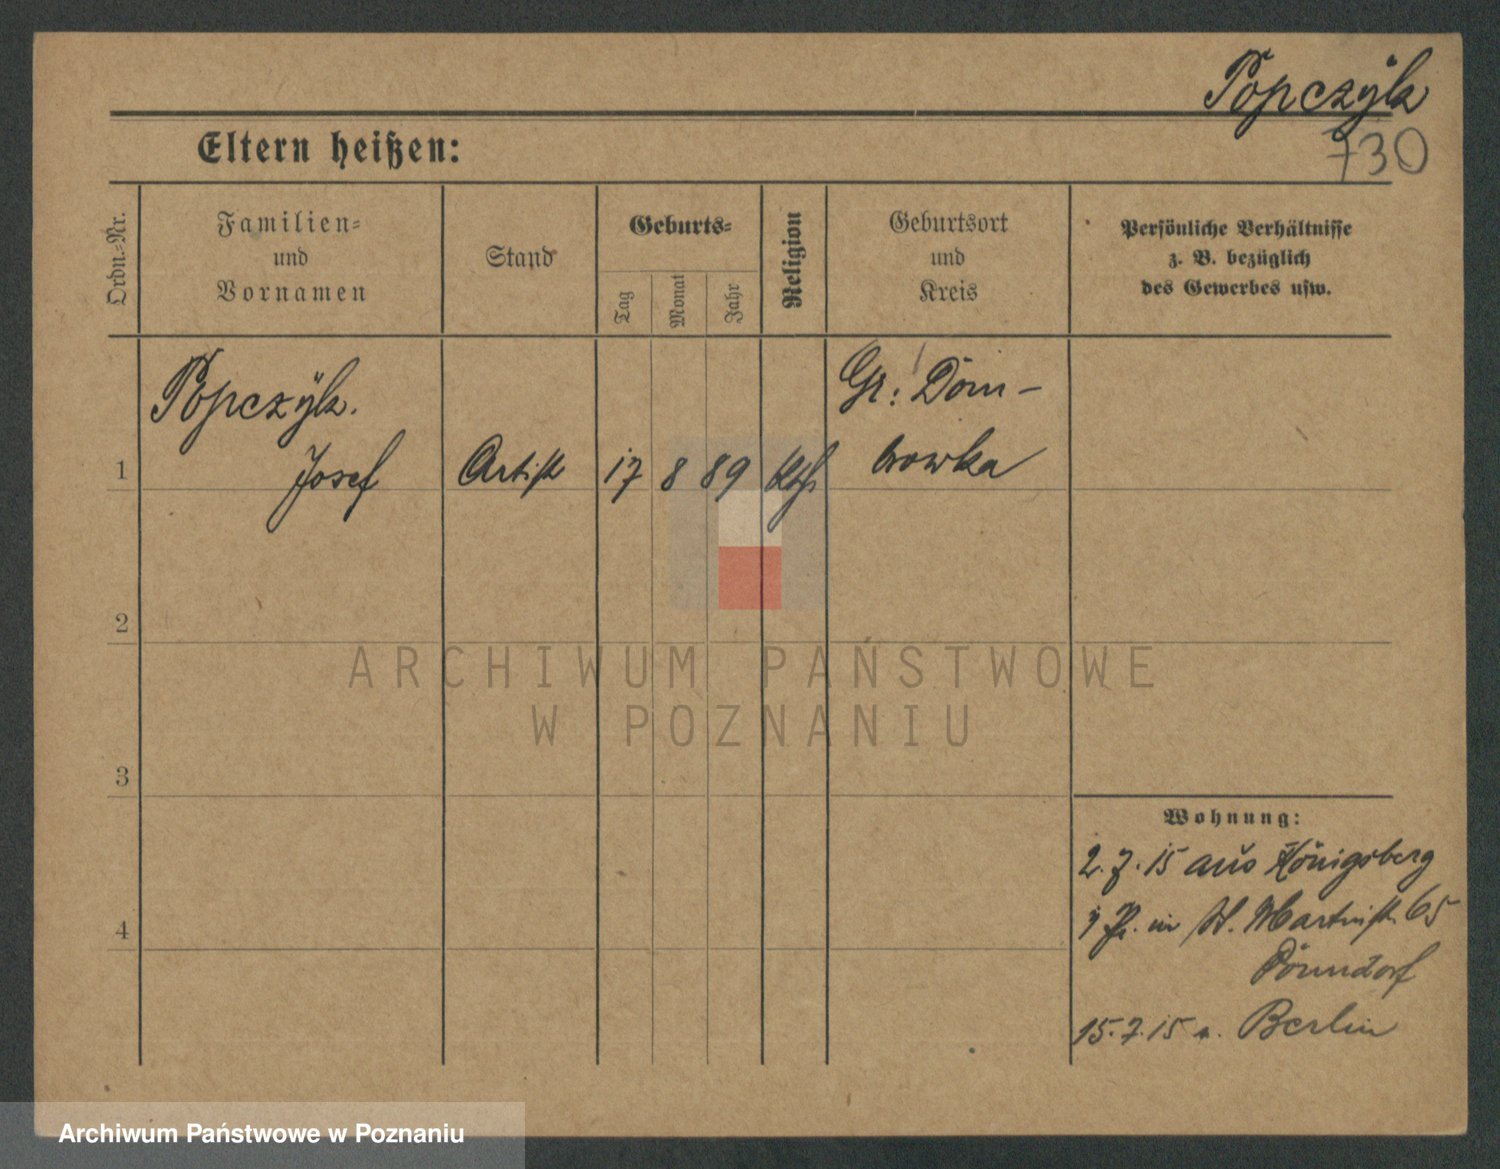 Popczÿk
730
Eltern heißen:
Ordn.-Nr.
Familien-
und
Vornamen
Stand
Geburts-
Tag
Monat
Jahr
Religion
Geburtsort
und
Kreis
Persönliche Verhältnisse
z. B. bezüglich
des Gewerbes usw.
1
Popczÿk.
Josef
Artist
17
8
89
kth
Gr. Dom-
browka
2
ARCHIWUM PAŃSTWOWE
W POZNANIU
3
Wohnung:
2.7.15 aus Königsberg
in St. Martinstr. 65
4
15.7.15 n. Berlin
Archiwum Państwowe w Poznaniu